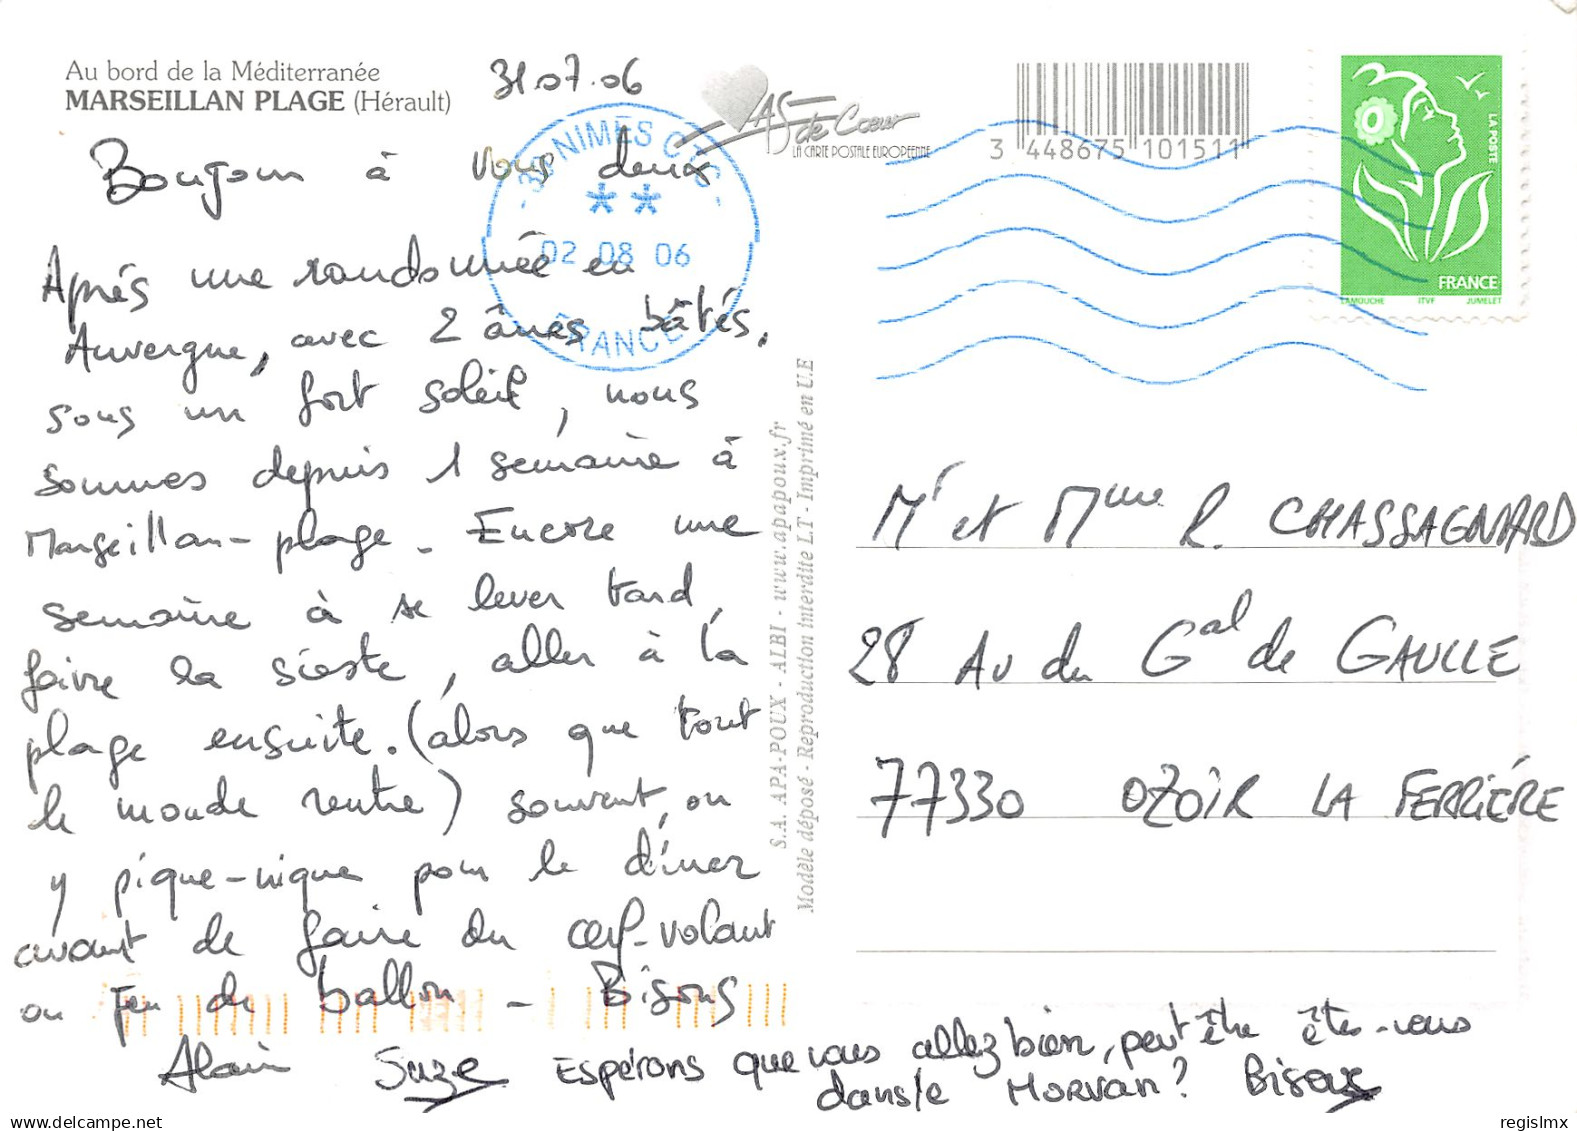 Au bord de la Méditerranée
MARSEILLAN PLAGE (Hérault)
31.07.06
Bonjour à vous deux
Après une randonnée en
Auvergne, avec 2 ânes bâtés,
sous un fort soleil, nous
sommes depuis 1 semaine à
Marseillan-plage. Encore une
semaine à se lever tard,
faire la sieste, aller à la
plage ensuite. (alors que tout
le monde rentre) souvent, on
y pique-nique pour le dîner
avant de faire du cerf-volant
ou jeu de ballon - Bisous
Alain Suze
Espérons que vous allez bien, peut être êtes-vous
dans le Morvan? Bisous
30 NIMES CTC
**
02 08 06
FRANCE
AS de Cœur
LA CARTE POSTALE EUROPÉENNE
3 448675 101511
LA POSTE
FRANCE
LAMOUCHE ITVF JUMELET
S.A. APA-POUX - ALBI - www.apapoux.fr
Modèle déposé - Reproduction interdite L.T - Imprimé en U.E
Mr et Mme R. CHASSAGNARD
28 Av du Gal de GAULLE
77330 OZOIR LA FERRIÉRE
regislmx